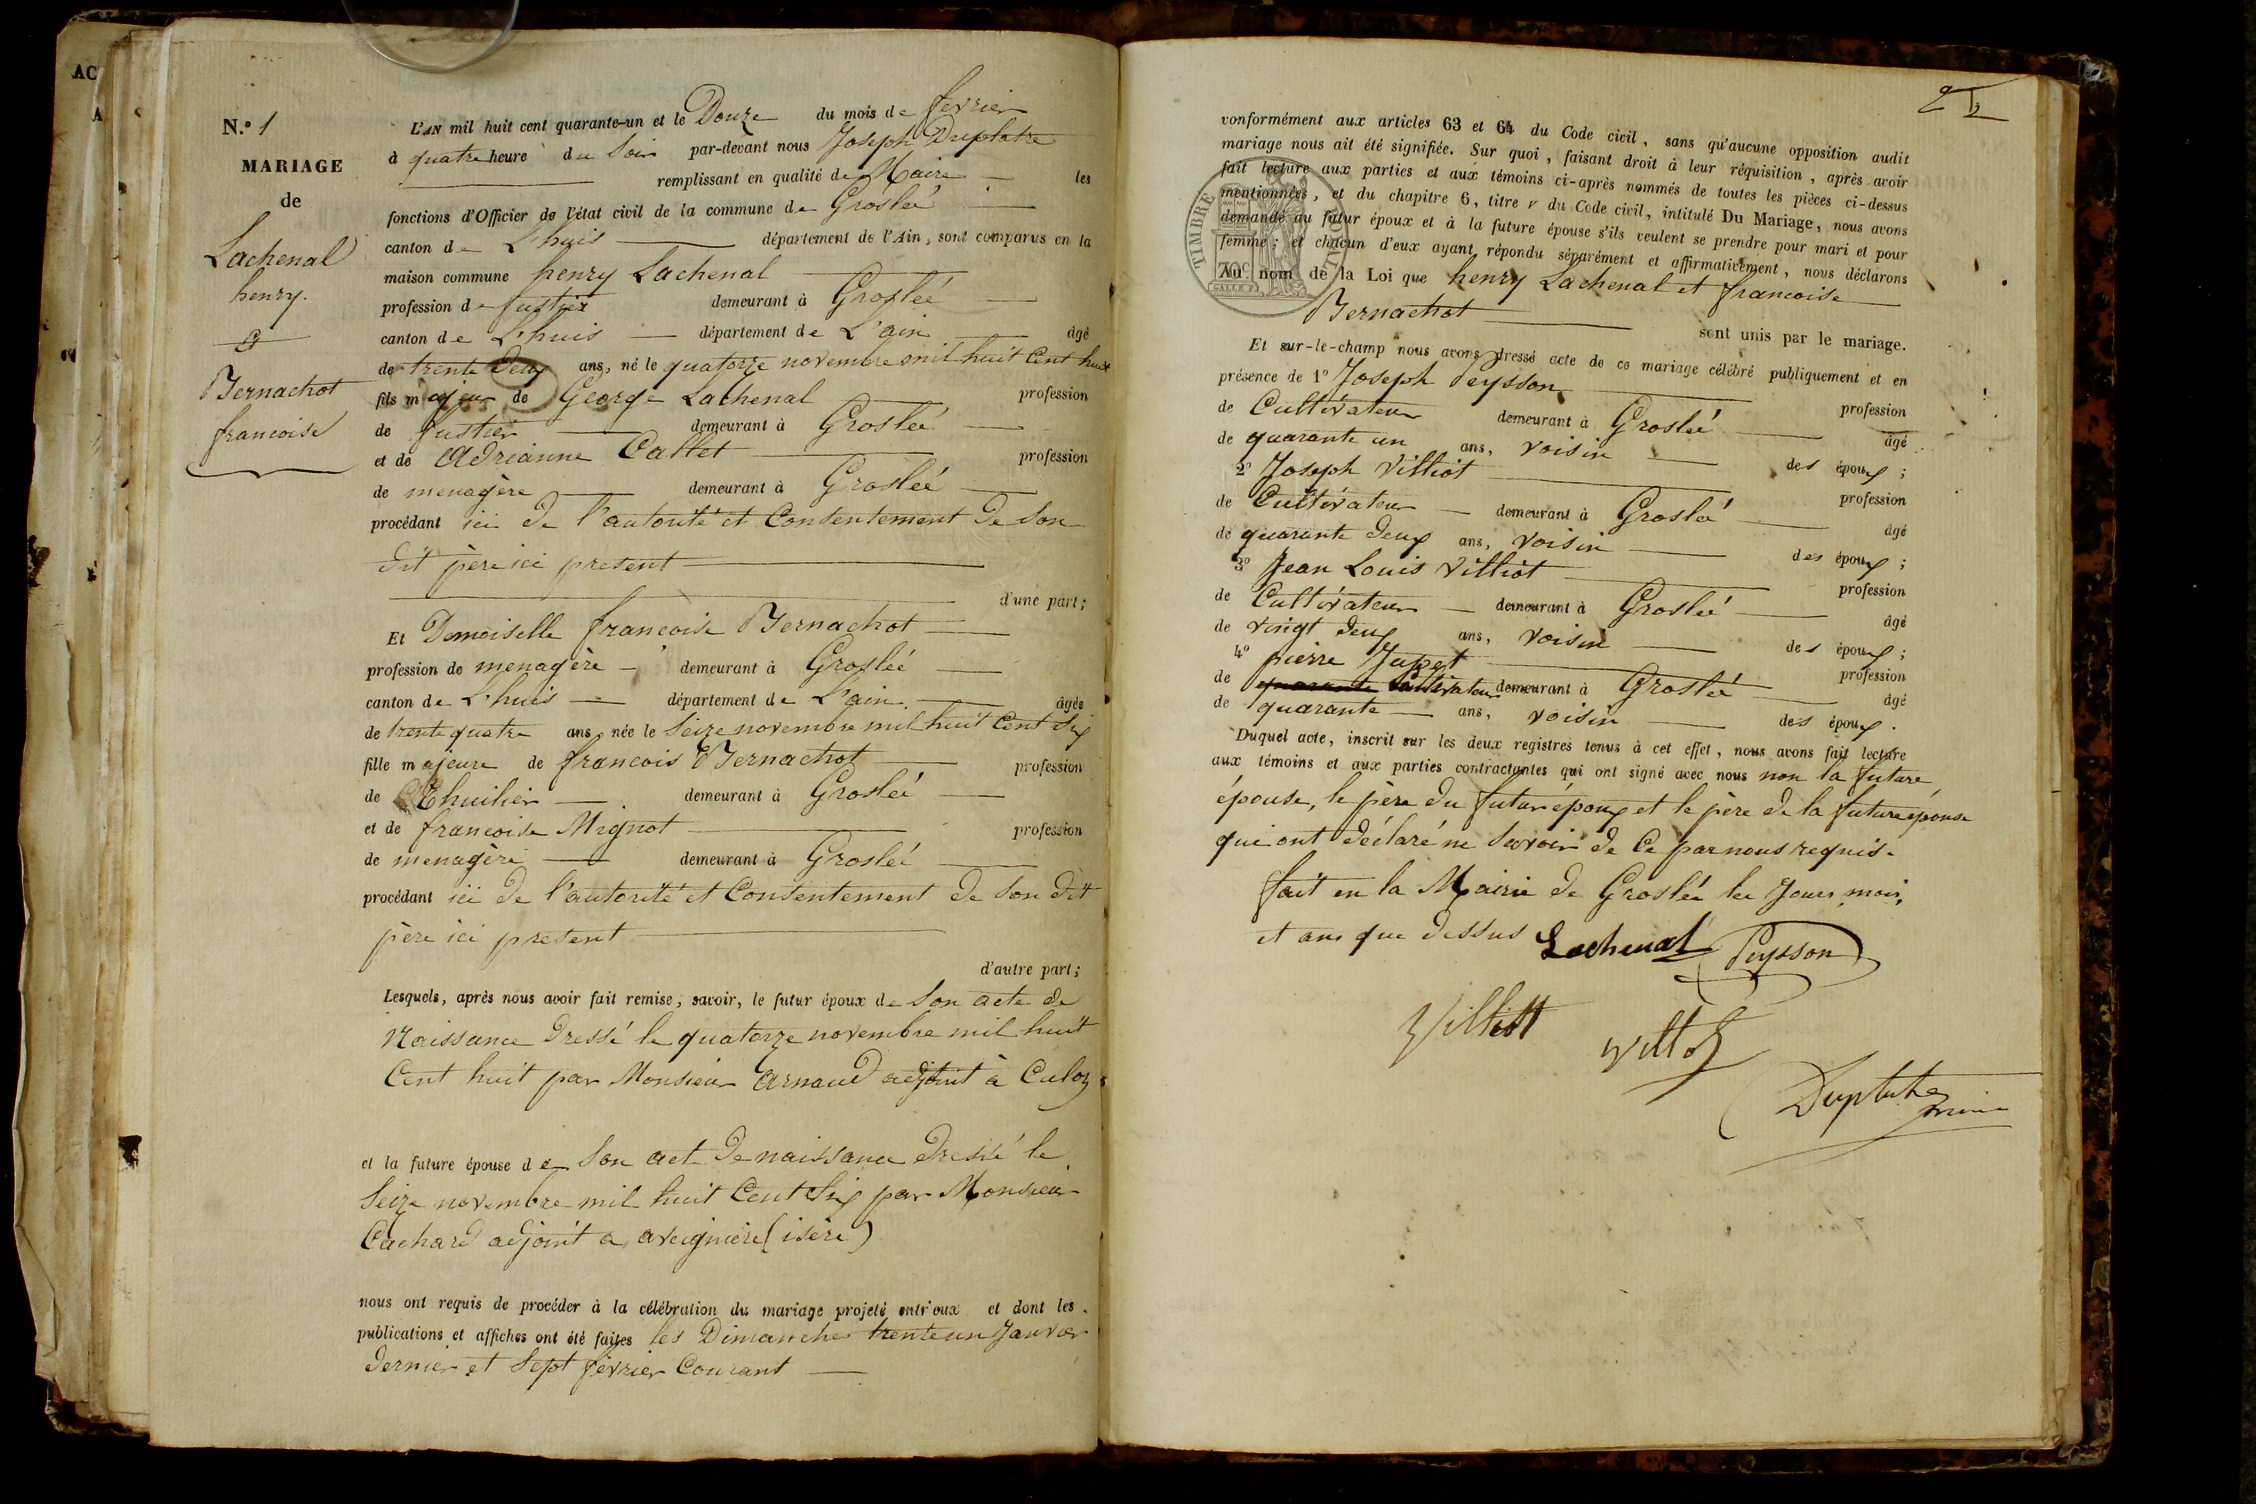 AC
A
N.° 1
MARIAGE
de
Lachenal
henry.
et
Bernachot
francoise
L'AN mil huit cent quarante-un et le Douze du mois de fevrier
à quatre heure du Soir par-devant nous Joseph Duplatre
remplissant en qualité de Maire les
fonctions d'Officier de l'état civil de la commune de Grosléé
canton de L'huis département de l'Ain, sont comparus en la
maison commune henry Lachenal
profession de fustier demeurant à Grosléé
canton de L'huis département de L'ain âgé
de trente deux ans, né le quatorze novembre mil huit Cent huit
fils majeur de George Lachenal profession
de fustier demeurant à Grosléé
et de Adrianne Callet profession
de menagère demeurant à Grosléé
procédant ici de l'autorité et Consentement de Son
dit père ici present
d'une part;
Et Demoiselle francoise Bernachot
profession de menagère demeurant à Grosléé
canton de L'huis département de L'ain âgée
de trente quatre ans, née le Seize novembre mil huit Cent Six
fille majeure de francois Bernachot profession
de thuilier demeurant à Grosléé
et de francoise Mignot profession
de menagère demeurant à Grosléé
procédant ici de l'autorité et Consentement de Son dit
père ici present
d'autre part;
Lesquels, après nous avoir fait remise, savoir, le futur époux de Son acte de
Naissance Dressé le quatorze novembre mil huit
Cent huit par Monsieur Arnaud adjoint à Culoz
et la future épouse de Son act de naissance dressé le
Seize novembre mil huit Cent Six par Monsieur
Cachard adjoint a aveignière (isère)
nous ont requis de procéder à la célébration du mariage projeté entr'eux et dont les
publications et affiches ont été faites les Dimanches trente un Janvier
dernier et Sept fèvrier Courant
2
conformément aux articles 63 et 64 du Code civil, sans qu'aucune opposition audit
mariage nous ait été signifiée. Sur quoi, faisant droit à leur réquisition, après avoir
fait lecture aux parties et aux témoins ci-après nommés de toutes les pièces ci-dessus
mentionnées, et du chapitre 6, titre v du Code civil, intitulé Du Mariage, nous avons
demandé au futur époux et à la future épouse s'ils veulent se prendre pour mari et pour
femme; et chacun d'eux ayant répondu séparément et affirmativement, nous déclarons
TIMBRE ROYAL
70c
Au nom de la Loi que henry Lachenal et francoise
Bernachot sont unis par le mariage.
Et sur-le-champ nous avons dressé acte de ce mariage célébré publiquement et en
présence de 1° Joseph Peysson profession
de Cultivateur demeurant à Grosléé âgé
de quarante un ans, voisin des époux;
2° Joseph Villiot profession
de Cultivateur demeurant à Grosléé âgé
de quarante deux ans, voisin des époux;
3° Jean Louis Villiot profession
de Cultivateur demeurant à Grosléé âgé
de vingt deux ans, voisin des époux;
4° pierre Jupet profession
de quarante Cultivateur demeurant à Grosléé âgé
de quarante ans, voisin des époux.
Duquel acte, inscrit sur les deux registres tenus à cet effet, nous avons fait lecture
aux témoins et aux parties contractantes qui ont signé avec nous non la future
épouse, le père du futur époux et le père de la future épouse
qui ont déclaré ne Savoir de Ce par nous requis.
fait en la Mairie de Grosléé les Jours, mois,
et ans que dessus Lachenal Peysson
Villiot
Duplatre
maire